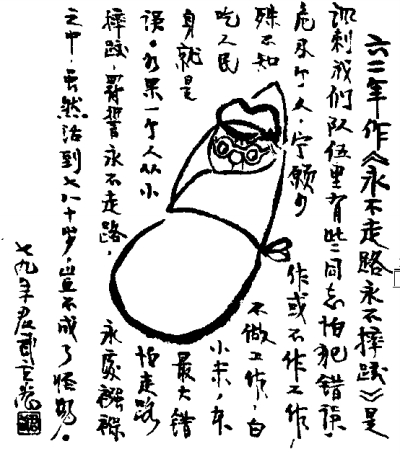 六二年作《永不走路永不摔跤》是
讽刺我们队伍里有些同志怕犯错误，
危及个人，宁愿少作或不作工作，
殊不知不做工作，白
吃人民小米，本
身就是最大错
误。如果一个人从小怕走路
摔跤，罚誓永不走路，永处襁褓
之中，虽然活到七八十岁，岂不成了怪物。
七九年